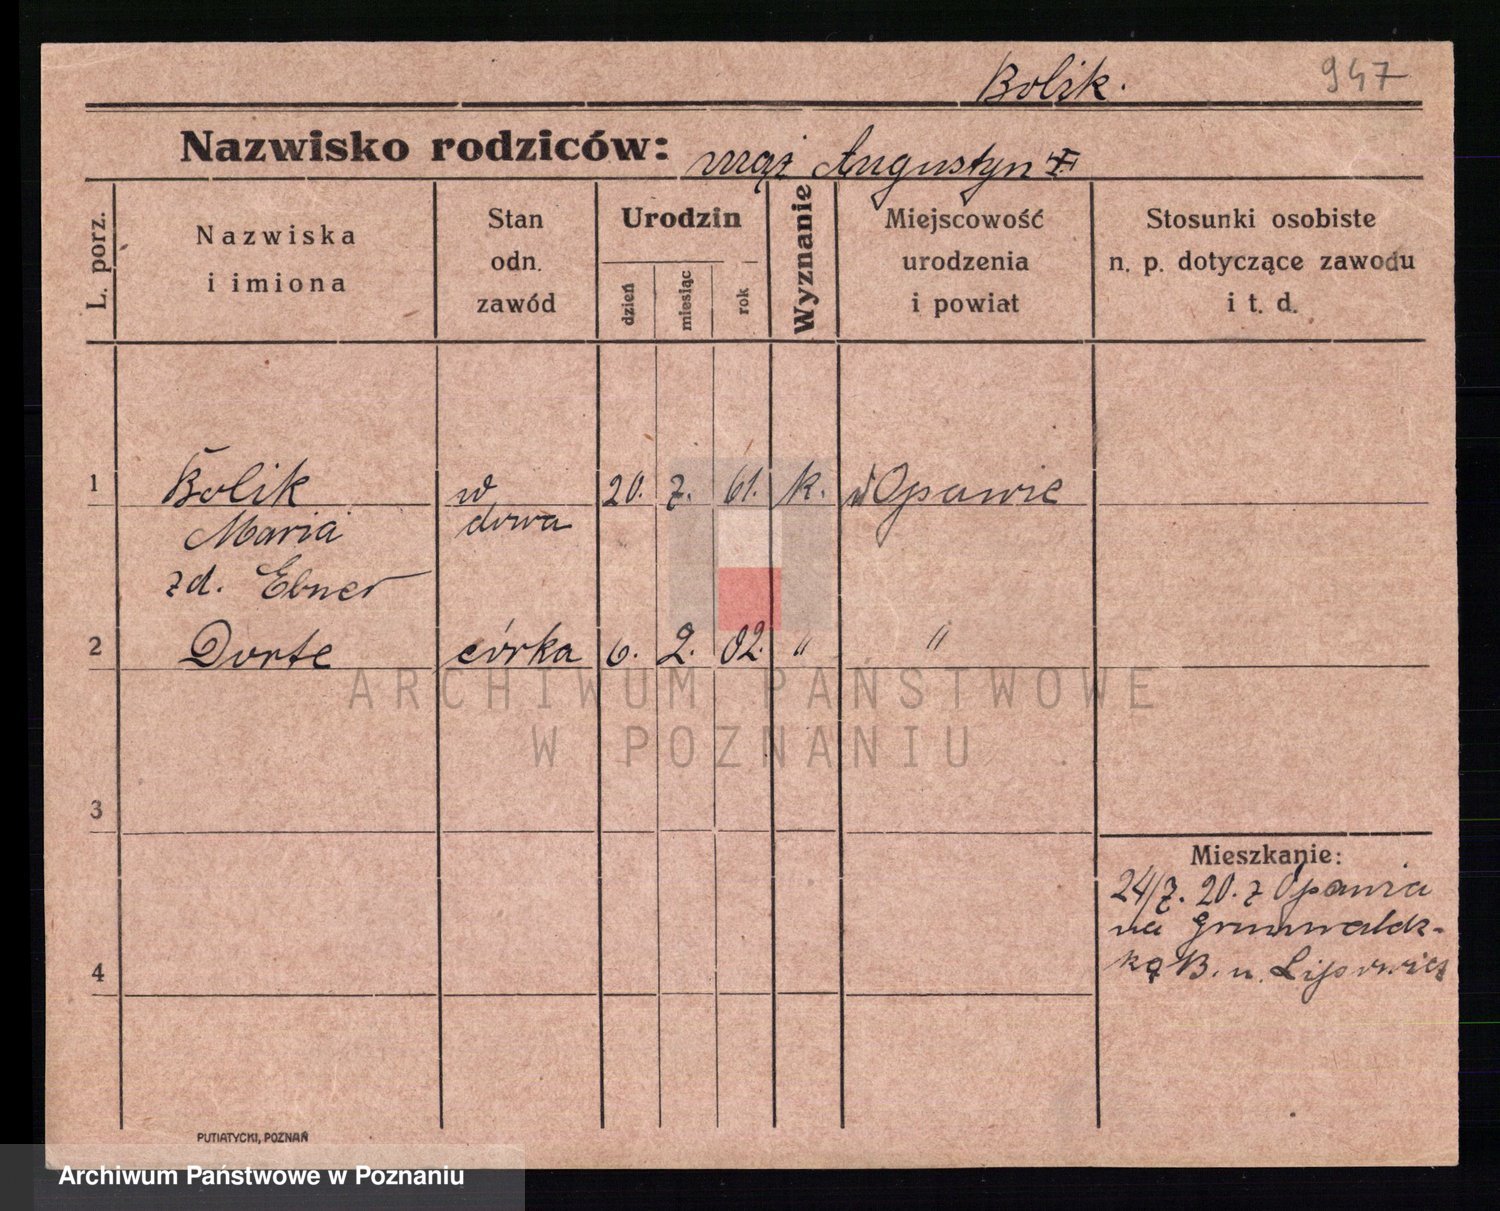 Bolik.
947
Nazwisko rodziców: mąż Augustyn
L. porz.
Nazwiska
i imiona
Stan
odn.
zawód
Urodzin
dzień
miesiąc
rok
Wyznanie
Miejscowość
urodzenia
i powiat
Stosunki osobiste
n. p. dotyczące zawodu
i t. d.
1 Bolik w 20. 7. 61. k. w Opawie
Maria dowa
zd. Ebner
2 Dorte córka 6. 2. 02. " "
ARCHIWUM PAŃSTWOWE
W POZNANIU
3
Mieszkanie:
24/7. 20. z Opawia
na Grunwaldz-
ką B. u
4
PUTIATYCKI, POZNAŃ
Archiwum Państwowe w Poznaniu